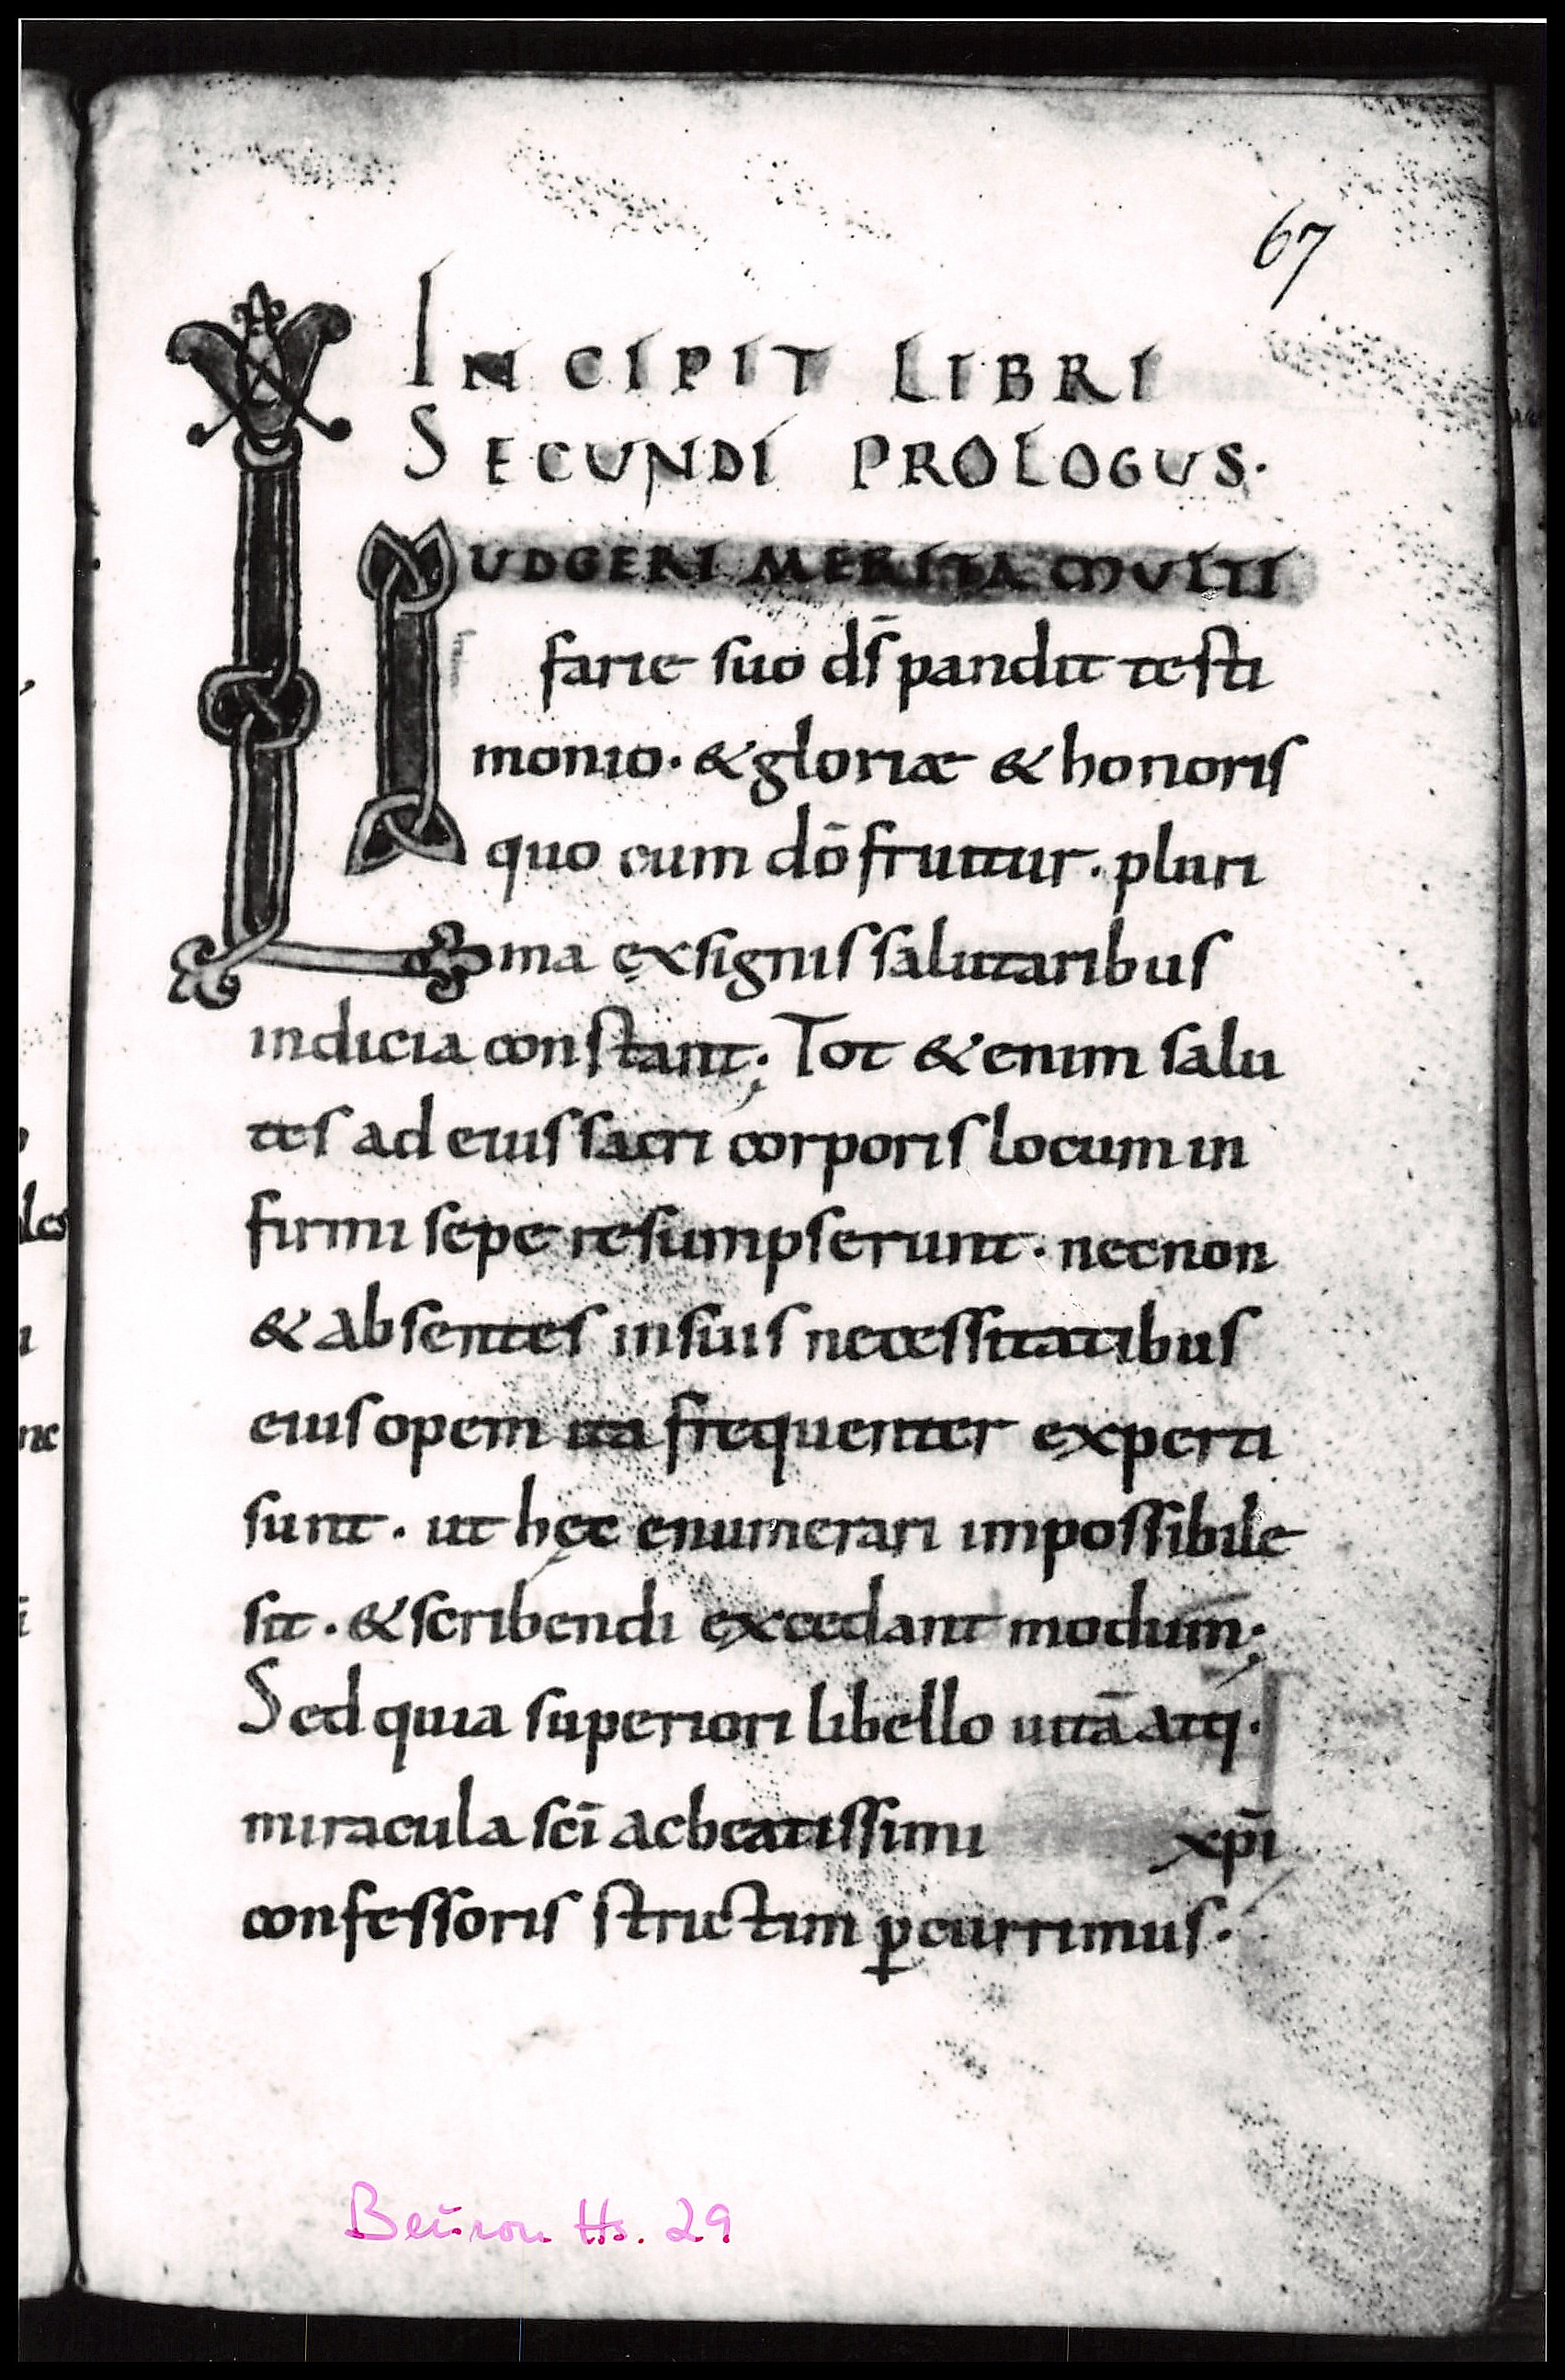 67
INCIPIT LIBRI
SECUNDI PROLOGUS·
LIUDGERI MERITA MULTI
farie suo dꝭ̄ pandit testi
monio· & gloriæ & honoris
quo cum dō fruitur· pluri
ma ex signis salutaribus
indicia constant; Tot & enim salu
tes ad eius sacri corporis locum in
firmi sepe resumpserunt· necnon
& absentes in suis necessitatibus
eius opem ita frequenter experti
sunt· ut hęc enumerari impossibile
sit· & scribendi excedant modum;
Sed quia superiori libello uitā atq·
miracula scī ac beatissimi xp̄i
confessoris strictim ꝑcurrimus·
Beuron Hs. 29